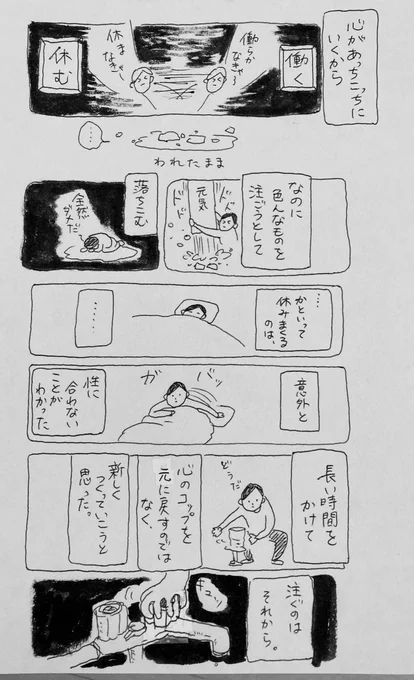 心があっちこっちに
いくから
働く
働らか
なきゃ〜
休ま
なきゃ
休む
……
われたまま
なのに
色んなものを
注ごうとして
ドドド
元気
ドドド
落ちこむ
全然
ダメだ
…
かといって
休みまくる
のは、
……
意外と
ガバッ
性に
合わない
ことが
わかった
長い時間を
かけて
どうだ
心のコップを
元に戻すのでは
なく、
新しく
つくっていこうと
思った。
注ぐのは
それから。